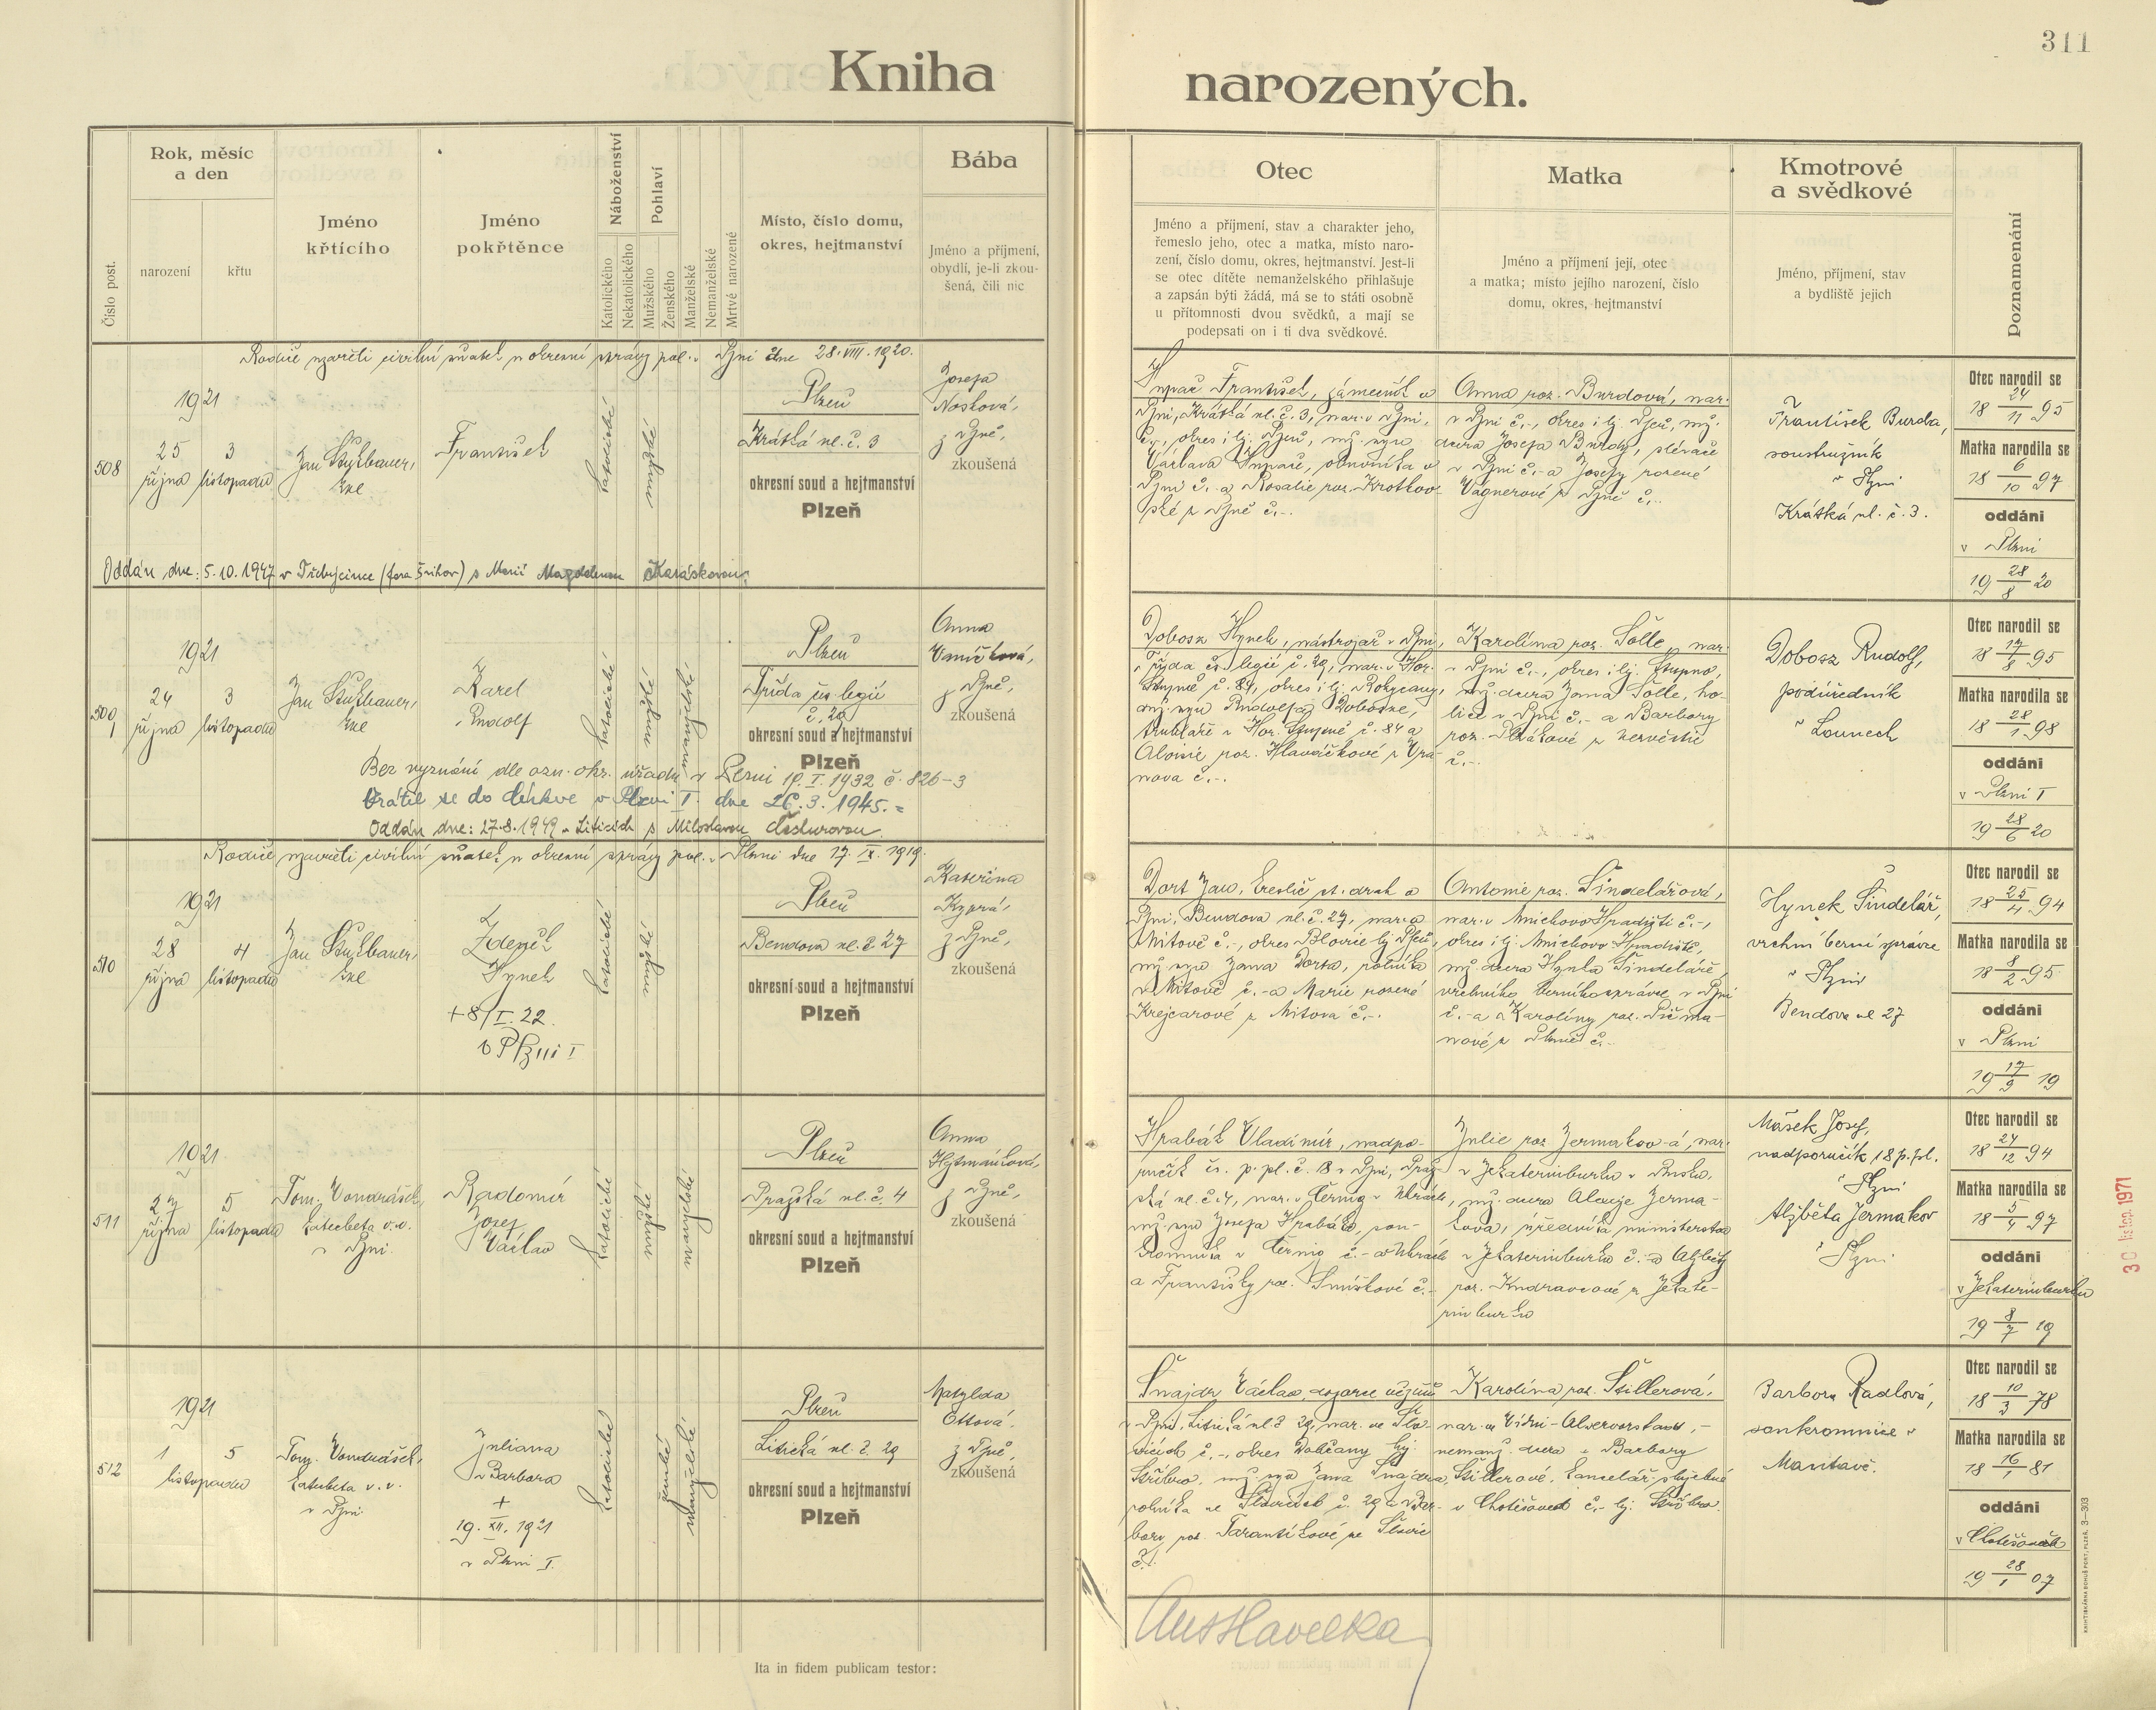 311
Kniha narozených.
Číslo post.
Rok, měsíc
a den
narození
křtu
Jméno
křtícího
Jméno
pokřtěnce
Náboženství
Katolického
Nekatolického
Pohlaví
Mužského
Ženského
Manželské
Nemanželské
Mrtvé narozené
Místo, číslo domu,
okres, hejtmanství
Bába
Jméno a příjmení,
obydlí, je-li zkou-
šená, čili nic
Otec
Jméno a příjmení, stav a charakter jeho,
řemeslo jeho, otec a matka, místo naro-
zení, číslo domu, okres, hejtmanství. Jest-li
se otec dítěte nemanželského přihlašuje
a zapsán býti žádá, má se to státi osobně
u přítomnosti dvou svědků, a mají se
podepsati on i ti dva svědkové.
Matka
Jméno a příjmení její, otec
a matka; místo jejího narození, číslo
domu, okres, hejtmanství
Kmotrové
a svědkové
Jméno, příjmení, stav
a bydliště jejich
Poznamenání
Rodiče uzavřeli civilní sňatek u okresní správy pol. v Plzni dne 28. VIII. 1920.
508
1921
25
října
3
listopadu
František
katolické
mužské
Plzeň
Krátká ul. č. 3
okresní soud a hejtmanství
Plzeň
Josefa
Nosková,
z Plzně,
zkoušená
František, zámečník v
Plzni, Krátká ul. č. 3, nar. v Plzni,
č.-, okres i hj. Plzeň, mž. syn
Václava
Plzni č.- a Rosalie roz. Krotkov-
ské z Plzně č.-.
Anna roz. Burdová, nar.
v Plzni č.-, okres i hj. Plzeň, mž.
dcera Josefa Burdy, slévače
v Plzni č.- a Josefy rozené
Vágnerové z Plzně č.-.
František Burda,
soustružník
v Plzni
Krátká ul. č. 3.
Otec narodil se
18 24/11 95
Matka narodila se
18 6/10 97
oddáni
v Plzni
19 28/8 20
Oddán dne: 5.10.1947 v Třebýcince (fara Švihov) s Marií Magdalenou Karáskovou.
509
1921
24
října
3
listopadu
Karel
Rudolf
katolické
mužské
manželské
Plzeň
Třída čs. legií
č. 29
okresní soud a hejtmanství
Plzeň
Anna
Vaníčková,
z Plzně,
zkoušená
Dobosz Hynek, nástrojař v Plzni,
Třída čs. legií č. 29, nar. v Hor.
Stupně č. 84, okres i hj. Rokycany,
mž. syn Rudolfa Dobosze,
truhláře v Hor. Stupně č. 84 a
Aloisie roz. Hlaváčkové z Vra-
nova č.-.
Karolina roz. Sölle, nar.
v Plzni č.-, okres i hj. Stupno,
mž. dcera Jana Sölle, ho-
liče v Plzni č.- a Barbory
č.-.
Dobosz Rudolf,
podúředník
v Lounech
Otec narodil se
18 17/8 95
Matka narodila se
18 28/1 98
oddáni
v Plzni I
19 28/6 20
Bez vyznání dle ozn. okr. úřadu v Plzni I. 1932 č. 826-3
Vrátil se do církve v Plzni I. dne 26.3.1945.=
Oddán dne: 27.8.1949 v Liticích s Miloslavou
Rodiče uzavřeli civilní sňatek u okresní správy pol. v Plzni dne 17. IX. 1919.
510
1921
28
října
4
listopadu
Zdeněk
Hynek
+8/I.22.
v Plzni I
katolické
mužské
Plzeň
Bendova ul. č. 27
okresní soud a hejtmanství
Plzeň
Kateřina
Kyprá,
z Plzně,
zkoušená
Dort Jan, st. drah v
Plzni, Bendova ul. č. 27, nar. v
Mítově č.-, okres Blovice hj. Plzeň,
mž. syn Jana Dorta, rolníka
v Mítově č.- a Marie rozené
Krejcarové z Mítova č.-.
Antonie roz. Šindelářová,
nar. v Mnichovo Hradišti č.-,
okres i hj. Mnichovo Hradiště,
mž. dcera Hynka Šindeláře,
vrchního berního správce v Plzni
č.- a Karoliny roz. Pičma-
nové z Plzně č.-.
Hynek Šindelář,
vrchní berní správce
v Plzni
Bendova ul 27
Otec narodil se
18 25/4 94
Matka narodila se
18 8/2 95
oddáni
v Plzni
19 17/9 19
511
1921
27
října
5
listopadu
Tom. Vondrášek,
katecheta v.v.
v Plzni.
Radomír
Josef
Václav
katolické
mužské
manželské
Plzeň
Pražská ul. č. 4
okresní soud a hejtmanství
Plzeň
Anna
z Plzně,
zkoušená
Hrabák Vladimír, nadpo-
ručík čs. p. pl. č. 18 v Plzni, Praž-
ská ul. č. 4, nar.
mž. syn Josefa Hrabáka, sou-
kromníka
a Františky roz. Smíškové č.-
Julie roz. Jermakov-á, nar.
v Jekaterinburku v Rusku,
mž. dcera Alexeje Jerma-
kova, úředníka ministerstva
v Jekaterinburku č.- a Alžběty
roz. z Jekate-
rinburku
Mašek Josef,
nadporučík 18 p. pl.
v Plzni
Alžběta Jermakov
v Plzni
Otec narodil se
18 24/12 94
Matka narodila se
18 5/4 97
oddáni
v Jekaterinburku
19 8/7 19
30 listop. 1971
512
1921
1
listopadu
5
Tom. Vondrášek,
katecheta v.v.
v Plzni
Juliana
Barbora
+
19. XII. 1921
v Plzni I.
katolické
ženské
manželské
Plzeň
Litická ul. č. 29
okresní soud a hejtmanství
Plzeň
Matylda
Ottová,
z Plzně,
zkoušená
Šnajdr Václav, dozorce vězňů
v Plzni, Litická ul. č. 29, nar. ve Sla-
vicích č.-, okres Dobřany hj.
Stříbro, mž. syn Jana Šnajdra,
rolníka ve č. 29 a Bar-
bory roz.
č. 1.
Karolína roz. Štillerová,
nar. ve Vídni - Alservorstadt, -
nemanž. dcera Barbory
Štillerové, kancelář. služebné
v Chotěšově č.- hj. Stříbro.
Barbora Radlová,
soukromnice v
Mantově.
Otec narodil se
18 10/3 78
Matka narodila se
18 16/1 81
oddáni
v Chotěšovech
19 28/1 07
Ita in fidem publicam testor:
KNIHTISKÁRNA BOHUŠ PORT, PLZEŇ. 3-303